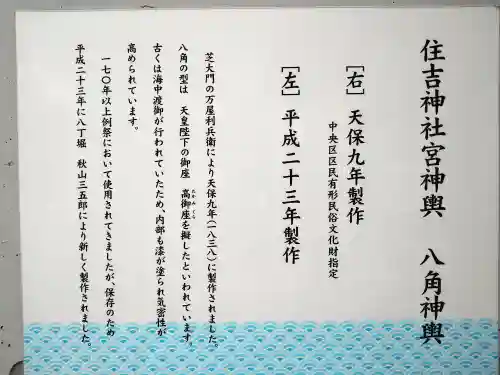 住吉神社宮神輿　八角神輿
［右］天保九年製作
中央区区民有形民俗文化財指定
［左］平成二十三年製作
芝大門の万屋利兵衛により天保九年（一八三八）に製作されました。
八角の型は　天皇陛下の御座　高御座を擬したといわれています。
たかみくら
古くは海中渡御が行われていたため、内部も漆が塗られ気密性が
高められています。
一七〇年以上例祭において使用されてきましたが、保存のため
平成二十三年に八丁堀　秋山三五郎により新しく製作されました。